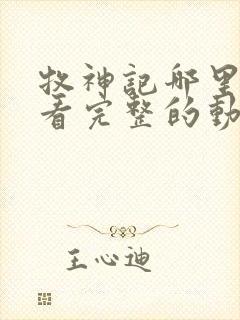 牧神記哪里
看完整的動
王心迪